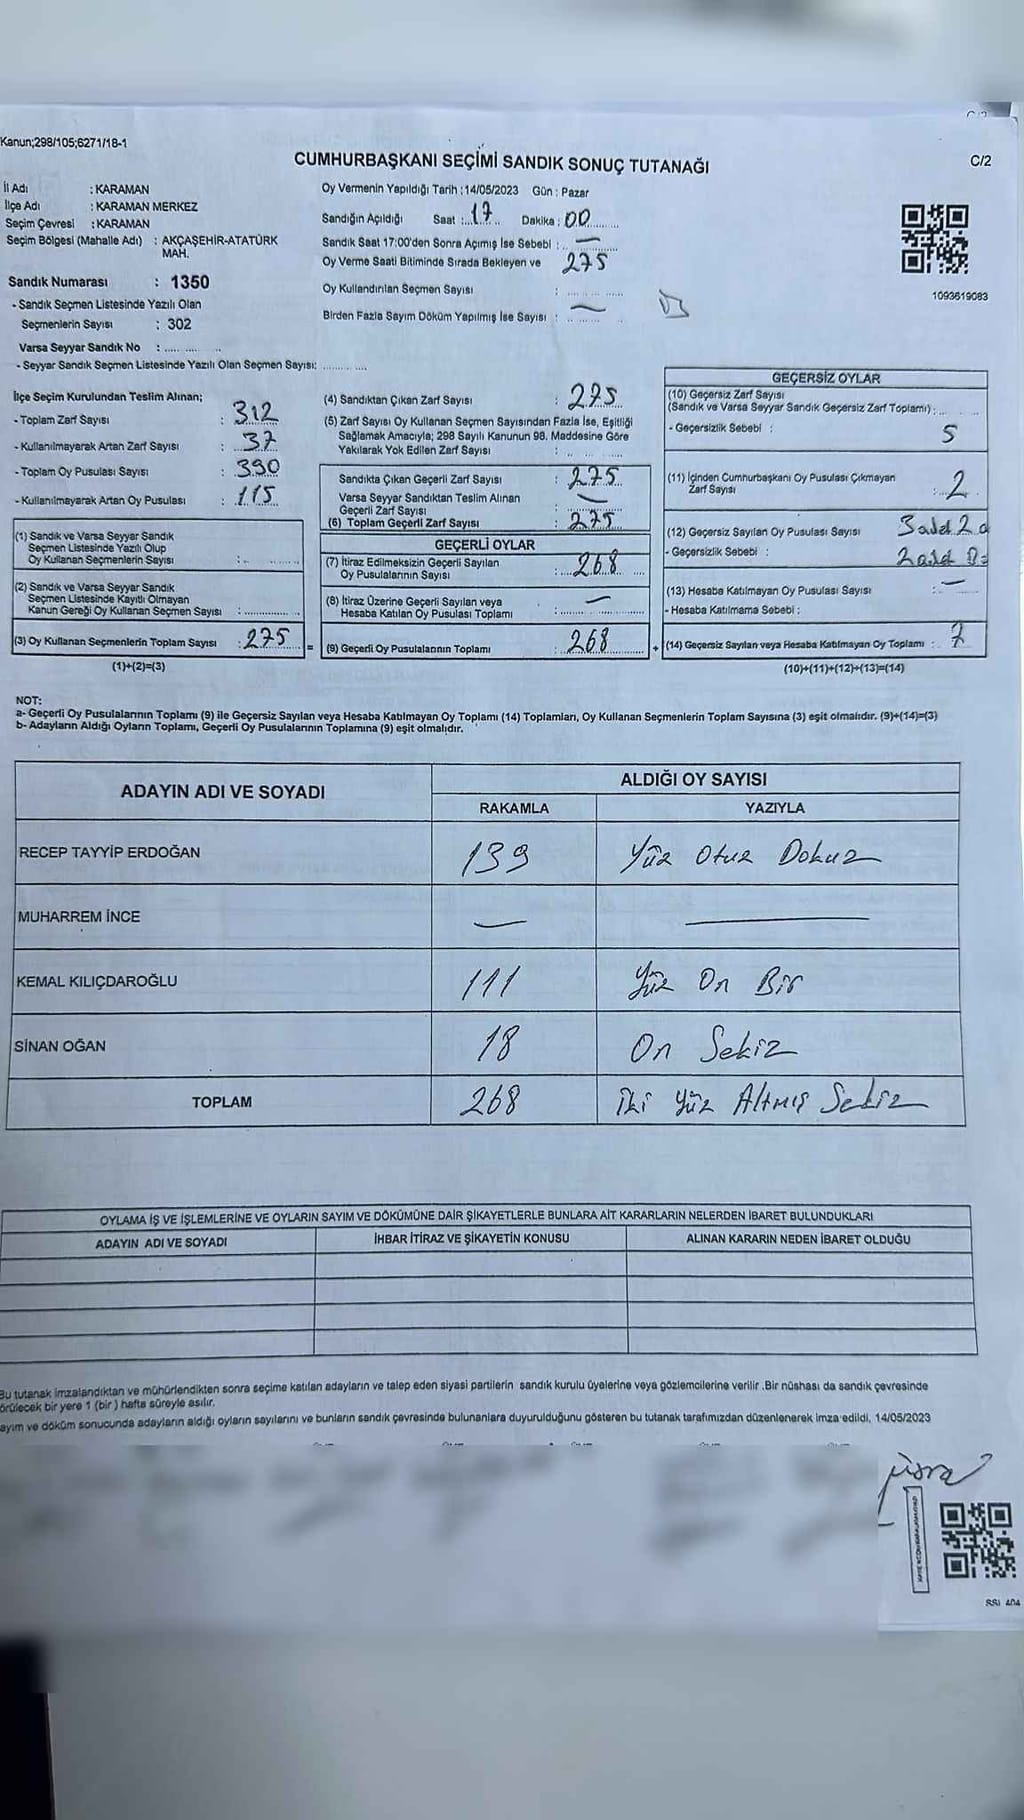 Kanun;298/105;6271/18-1
CUMHURBAŞKANI SEÇİMİ SANDIK SONUÇ TUTANAĞI
C/2
İl Adı : KARAMAN
İlçe Adı : KARAMAN MERKEZ
Seçim Çevresi : KARAMAN
Seçim Bölgesi (Mahalle Adı) : AKÇAŞEHİR-ATATÜRK
MAH.
Sandık Numarası : 1350
- Sandık Seçmen Listesinde Yazılı Olan
Seçmenlerin Sayısı : 302
Varsa Seyyar Sandık No : .... ........
- Seyyar Sandık Seçmen Listesinde Yazılı Olan Seçmen Sayısı: ........ ....
Oy Vermenin Yapıldığı Tarih :14/05/2023 Gün : Pazar
Sandığın Açıldığı Saat : 17 Dakika : 00
Sandık Saat 17:00'den Sonra Açımış İse Sebebi : —
Oy Verme Saati Bitiminde Sırada Bekleyen ve 275
Oy Kullandırılan Seçmen Sayısı :
Birden Fazla Sayım Döküm Yapılmış İse Sayısı : —
1093619083
İlçe Seçim Kurulundan Teslim Alınan;
- Toplam Zarf Sayısı : 312
- Kullanılmayarak Artan Zarf Sayısı : 37
- Toplam Oy Pusulası Sayısı : 390
- Kullanılmayarak Artan Oy Pusulası : 115
(1) Sandık ve Varsa Seyyar Sandık
Seçmen Listesinde Yazılı Olup
Oy Kullanan Seçmenlerin Sayısı :
(2) Sandık ve Varsa Seyyar Sandık
Seçmen Listesinde Kayıtlı Olmayan
Kanun Gereği Oy Kullanan Seçmen Sayısı :
(3) Oy Kullanan Seçmenlerin Toplam Sayısı : 275 =
(1)+(2)=(3)
(4) Sandıktan Çıkan Zarf Sayısı : 275
(5) Zarf Sayısı Oy Kullanan Seçmen Sayısından Fazla İse, Eşitliği
Sağlamak Amacıyla; 298 Sayılı Kanunun 98. Maddesine Göre
Yakılarak Yok Edilen Zarf Sayısı :
Sandıkta Çıkan Geçerli Zarf Sayısı : 275
Varsa Seyyar Sandıktan Teslim Alınan
Geçerli Zarf Sayısı : —
(6) Toplam Geçerli Zarf Sayısı : 275
GEÇERLİ OYLAR
(7) İtiraz Edilmeksizin Geçerli Sayılan
Oy Pusulalarının Sayısı : 268
(8) İtiraz Üzerine Geçerli Sayılan veya
Hesaba Katılan Oy Pusulası Toplamı : —
(9) Geçerli Oy Pusulalarının Toplamı : 268 +
GEÇERSİZ OYLAR
(10) Geçersiz Zarf Sayısı
(Sandık ve Varsa Seyyar Sandık Geçersiz Zarf Toplamı) :
- Geçersizlik Sebebi : 5
(11) İçinden Cumhurbaşkanı Oy Pusulası Çıkmayan
Zarf Sayısı : 2
(12) Geçersiz Sayılan Oy Pusulası Sayısı 3 adet
- Geçersizlik Sebebi : 2 adet
(13) Hesaba Katılmayan Oy Pusulası Sayısı : —
- Hesaba Katılmama Sebebi :
(14) Geçersiz Sayılan veya Hesaba Katılmayan Oy Toplamı : 7
(10)+(11)+(12)+(13)=(14)
NOT:
a- Geçerli Oy Pusulalarının Toplamı (9) ile Geçersiz Sayılan veya Hesaba Katılmayan Oy Toplamı (14) Toplamları, Oy Kullanan Seçmenlerin Toplam Sayısına (3) eşit olmalıdır. (9)+(14)=(3)
b- Adayların Aldığı Oyların Toplamı, Geçerli Oy Pusulalarının Toplamına (9) eşit olmalıdır.
ADAYIN ADI VE SOYADI ALDIĞI OY SAYISI
RAKAMLA YAZIYLA
RECEP TAYYİP ERDOĞAN 139 Yüz Otuz Dokuz
MUHARREM İNCE — —
KEMAL KILIÇDAROĞLU 111 Yüz On Bir
SİNAN OĞAN 18 On Sekiz
TOPLAM 268 İki Yüz Altmış Sekiz
OYLAMA İŞ VE İŞLEMLERİNE VE OYLARIN SAYIM VE DÖKÜMÜNE DAİR ŞİKAYETLERLE BUNLARA AİT KARARLARIN NELERDEN İBARET BULUNDUKLARI
ADAYIN ADI VE SOYADI İHBAR İTİRAZ VE ŞİKAYETİN KONUSU ALINAN KARARIN NEDEN İBARET OLDUĞU
Bu tutanak imzalandıktan ve mühürlendikten sonra seçime katılan adayların ve talep eden siyasi partilerin sandık kurulu üyelerine veya gözlemcilerine verilir .Bir nüshası da sandık çevresinde
örülecek bir yere 1 (bir ) hafta süreyle asılır.
ayım ve döküm sonucunda adayların aldığı oyların sayılarını ve bunların sandık çevresinde bulunanlara duyurulduğunu gösteren bu tutanak tarafımızdan düzenlenerek imza edildi, 14/05/2023